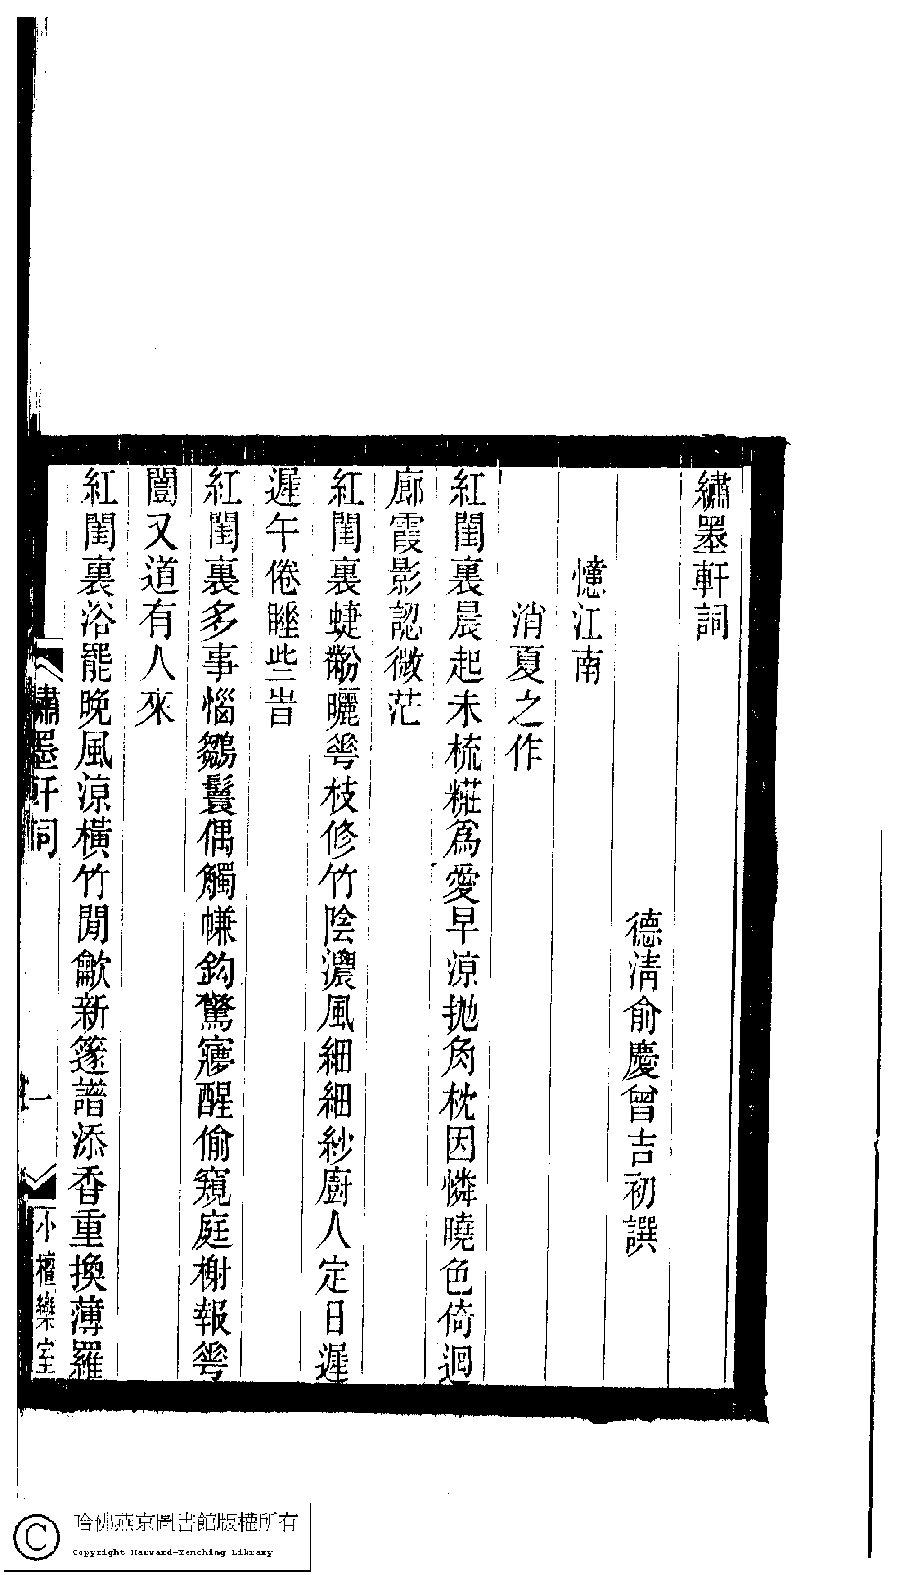 繡墨軒詞
德清俞慶曾吉初譔
憶江南
消夏之作
紅閨裏晨起未梳糚為愛早涼拋角枕因憐曉色倚迴
廊霞影認微茫
紅閨裏蜨粉曬蕚枝修竹陰濃風細細紗廚人定日遲
遲午倦睡些旹
紅閨裏多事惱鶵鬟偶觸㡘鈎驚寤醒偷窺庭榭報蕚
闓又道有人來
紅閨裏浴罷晚風涼橫竹閒龡新篴譜添香重換薄羅
繡墨軒詞
一
小檀欒室
哈佛燕京圖書館版權所有
Copyright Harvard-Yenching Library